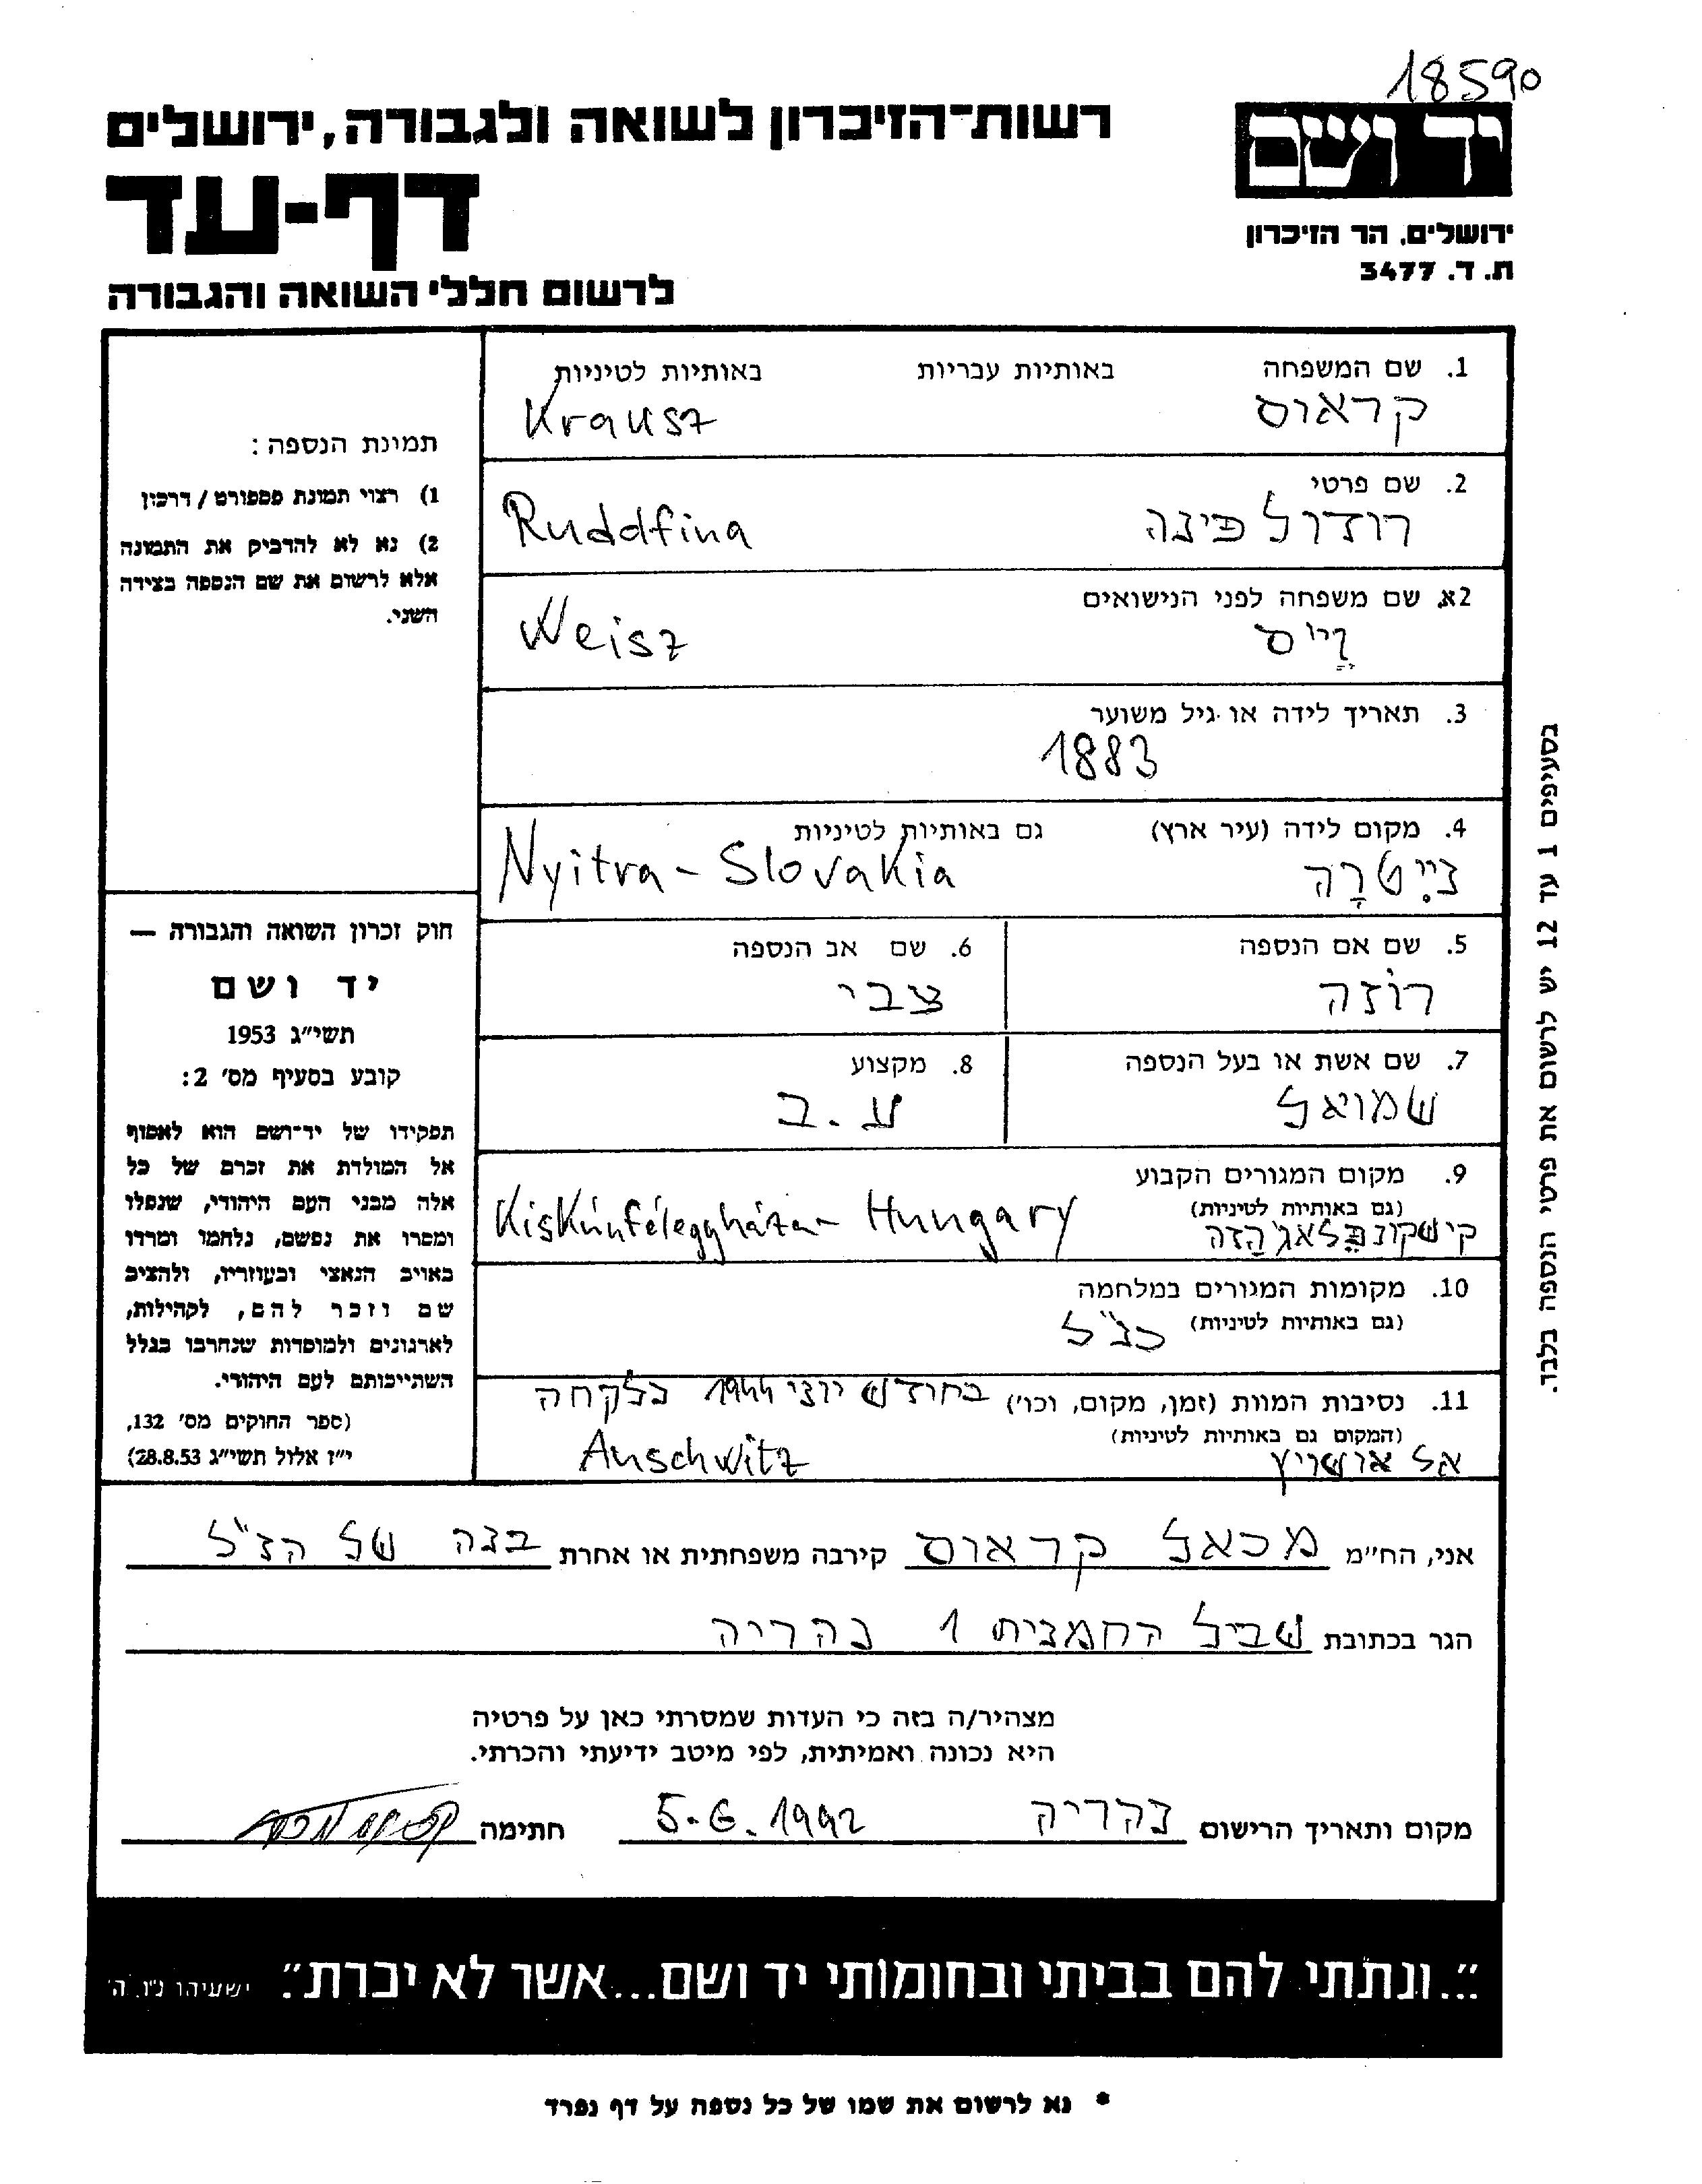 18590
יד ושם
רשות־הזיכרון לשואה ולגבורה, ירושלים
דף-עד
לרשום חללי השואה והגבורה
ירושלים, הר הזיכרון
ת. ד. 3477
1. שם המשפחה באותיות עבריות באותיות לטיניות
קראוס Krausz
2. שם פרטי
רודולפינה Rudolfina
2א. שם משפחה לפני הנישואים
וַיס Weisz
3. תאריך לידה או גיל משוער
1883
4. מקום לידה (עיר ארץ) גם באותיות לטיניות
נייִטרָה Nyitra - Slovakia
5. שם אם הנספה
רוֹזה
6. שם אב הנספה
צבי
7. שם אשת או בעל הנספה
שמואל
8. מקצוע
ע.ב
9. מקום המגורים הקבוע
(גם באותיות לטיניות)
קישקונפֶלאג'הָזה Kiskúnfélegyháza - Hungary
10. מקומות המגורים במלחמה
(גם באותיות לטיניות) כנ"ל
11. נסיבות המוות (זמן, מקום, וכו') בחודש יוני 1944 נלקחה
(המקום גם באותיות לטיניות)
אל אושויץ Auschwitz
תמונת הנספה:
1) רצוי תמונת פספורט / דרכון
2) נא לא להדביק את התמונה
אלא לרשום את שם הנספה בצידה
השני.
חוק זכרון השואה והגבורה —
יד ושם
תשי״ג 1953
קובע בסעיף מס׳ 2:
תפקידו של יד־ושם הוא לאסוף
אל המולדת את זכרם של כל
אלה מבני העם היהודי, שנפלו
ומסרו את נפשם, נלחמו ומרדו
באויב הנאצי ובעוזריו, ולהציב
שם וזכר להם, לקהילות,
לארגונים ולמוסדות שנחרבו בגלל
השתייכותם לעם היהודי.
(ספר החוקים מס׳ 132,
י״ז אלול תשי״ג 28.8.53)
בסעיפים 1 עד 12 יש לרשום את פרטי הנספה בלבד.
אני, הח״מ מכאל קראוס קירבה משפחתית או אחרת בנה של הנ"ל
הגר בכתובת שביל החמנית 1 נהריה
מצהיר/ה בזה כי העדות שמסרתי כאן על פרטיה
היא נכונה ואמיתית, לפי מיטב ידיעתי והכרתי.
מקום ותאריך הרישום נהריה 5.6.1992 חתימה
"...ונתתי להם בביתי ובחומותי יד ושם...אשר לא יכרת". ישעיהו נ״ו, ה׳
* נא לרשום את שמו של כל נספה על דף נפרד